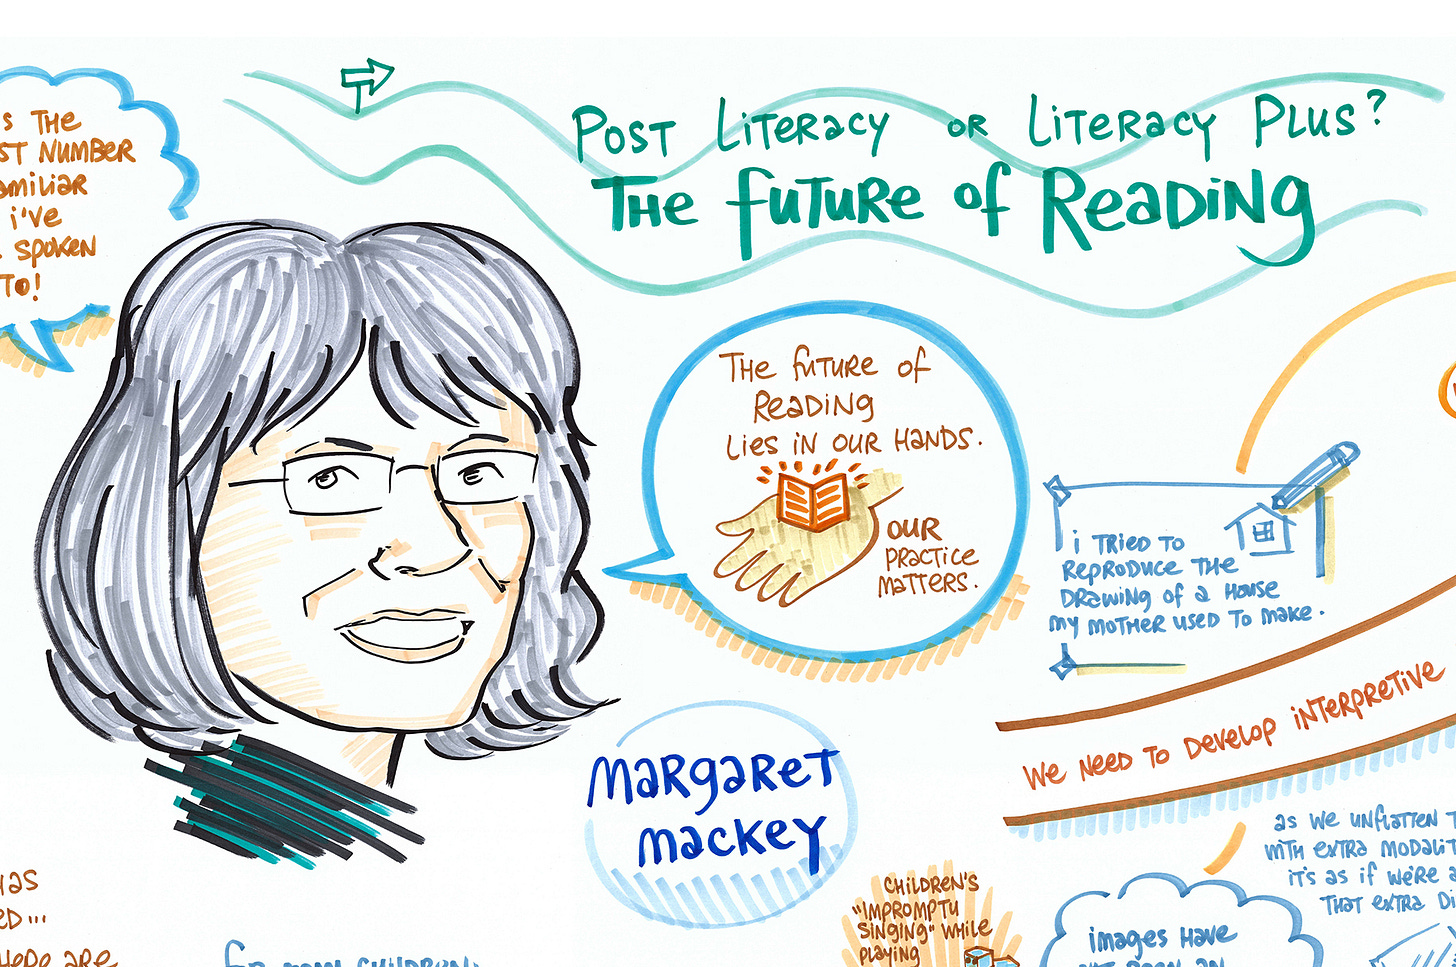 THE
NUMBER
i've
SPOKEN
TO!
POST LITERACY OR LITERACY PLUS?
THE FUTURE OF READING
THE FUTURE OF
READING
LIES IN OUR HANDS.
OUR
PRACTICE
MATTERS.
i TRIED TO
REPRODUCE THE
DRAWING OF A HOUSE
MY MOTHER USED TO MAKE.
WE NEED TO DEVELOP INTERPRETIVE
MARGARET
MACKEY
AS WE UNFLATTEN
WITH EXTRA
IT'S AS IF WE'RE
THAT EXTRA
CHILDREN'S
"IMPROMPTU
SINGING" WHILE
PLAYING
IMAGES HAVE
ARE